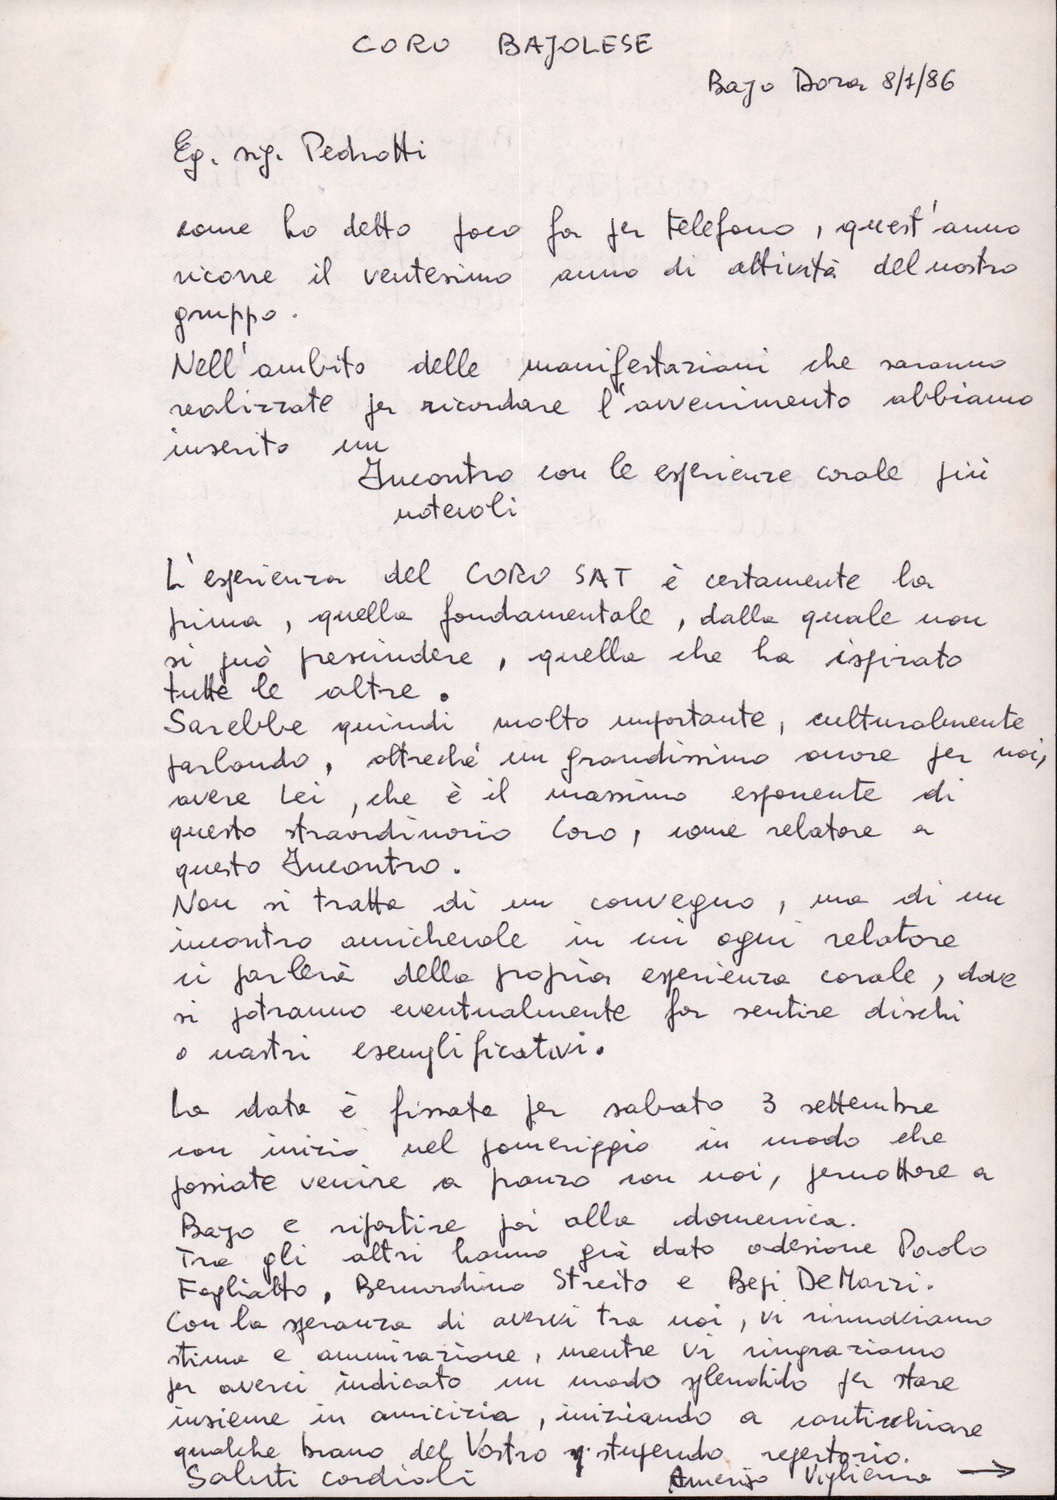 CORO BAJOLESE
Bajo Dora 8/1/86
Eg. sig. Pedrotti
come ho detto poco fa per telefono, quest'anno
ricorre il ventesimo anno di attività del nostro
gruppo.
Nell'ambito delle manifestazioni che saranno
realizzate per ricordare l'avvenimento abbiamo
inserito un
Incontro con le esperienze corale più
notevoli
L'esperienza del CORO SAT è certamente la
prima, quella fondamentale, dalla quale non
si può prescindere, quella che ha ispirato
tutte le altre.
Sarebbe quindi molto importante, culturalmente
parlando, oltreché un grandissimo onore per noi,
avere Lei, che è il massimo esponente di
questo straordinario Coro, come relatore a
questo Incontro.
Non si tratta di un convegno, ma di un
incontro amichevole in cui ogni relatore
ci parlerà della propria esperienza corale, dove
si potranno eventualmente far sentire dischi
o nastri esemplificativi.
La data è fissata per sabato 3 settembre
con inizio nel pomeriggio in modo che
possiate venire a pranzo con noi, pernottare a
Bajo e ripartire poi alla domenica.
Tra gli altri hanno già dato adesione Paolo
Bernardino Streito e Bepi De Marzi.
Con la speranza di avervi tra noi, vi rinnoviamo
stima e ammirazione, mentre vi ringraziamo
per averci indicato un modo splendido per stare
insieme in amicizia, iniziando a canticchiare
qualche brano del Vostro stupendo repertorio.
Saluti cordiali Amerigo Vigliermo →